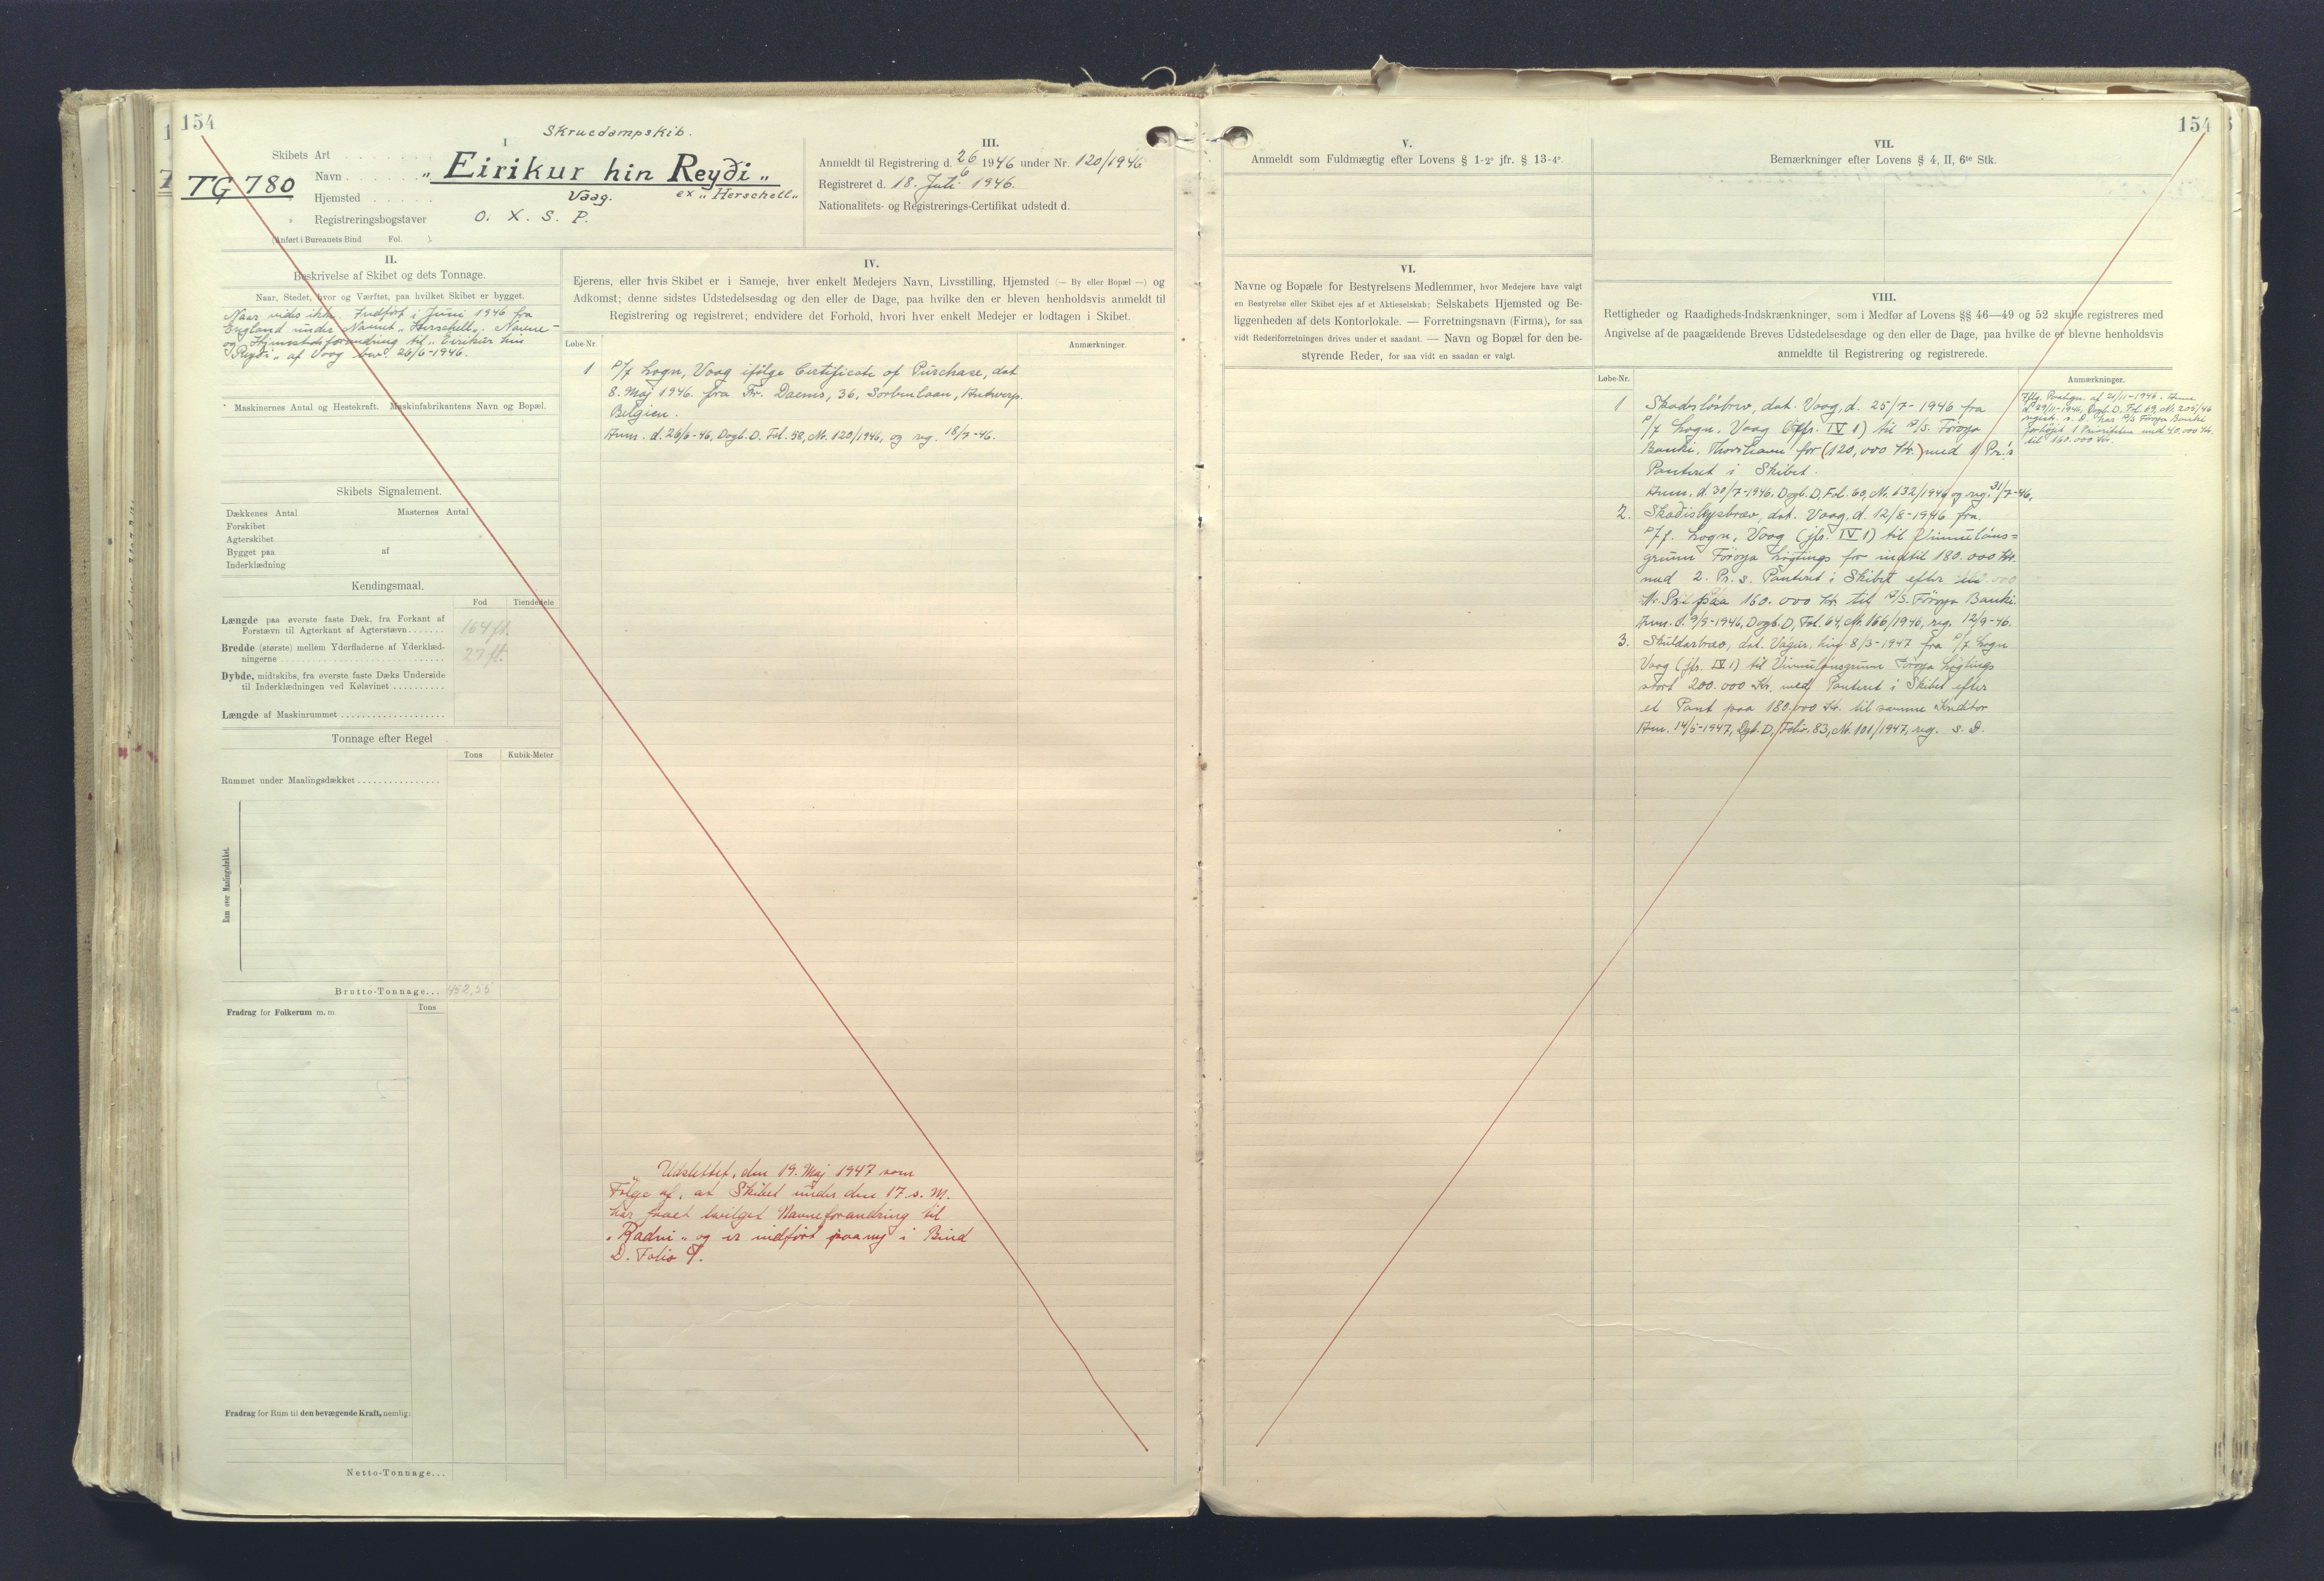 154
Skruedampskib.
I
Skibets Art
TG 780
Navn „ Eirikur hin Reyði „
ex „ Herschell„
Hjemsted Vaag.
Registreringsbogstaver O. X. S. P.
(Anført i Bureauets Bind Fol. ).
III.
Anmeldt til Registrering d. 26/6 1946 under Nr. 120/1946
Registreret d. 18. Juli 1946.
Nationalitets- og Registrerings-Certifikat udstedt d.
II.
Beskrivelse af Skibet og dets Tonnage.
Naar, Stedet, hvor og Værftet, paa hvilket Skibet er bygget.
Naar vides ikke. Indført i Juni 1946 fra
England under Navnet „Herschell„. Navne-
og Hjemstedsforandring til „Eirikur hin
Reyði„ af Vaag bev. 26/6-1946.
Maskinernes Antal og Hestekraft. Maskinfabrikantens Navn og Bopæl.
Skibets Signalement.
Dækkenes Antal Masternes Antal
Forskibet
Agterskibet
Bygget paa af
Inderklædning
Kendingsmaal.
Fod Tiendedele
Længde paa øverste faste Dæk, fra Forkant af
Forstævn til Agterkant af Agterstævn 164 ft.
Bredde (største) mellem Yderfladerne af Yderklæd-
ningerne 27 ft.
Dybde, midtskibs, fra øverste faste Dæks Underside
til Inderklædningen ved Kølsvinet
Længde af Maskinrummet
Tonnage efter Regel
Tons Kubik-Meter
Rummet under Maalingsdækket
Rum over Maalingsdækket.
Brutto-Tonnage... 452,55
Fradrag for Folkerum m. m. Tons
Fradrag for Rum til den bevægende Kraft, nemlig:
Netto-Tonnage...
IV.
Ejerens, eller hvis Skibet er i Sameje, hver enkelt Medejers Navn, Livsstilling, Hjemsted (— By eller Bopæl —) og
Adkomst; denne sidstes Udstedelsesdag og den eller de Dage, paa hvilke den er bleven henholdsvis anmeldt til
Registrering og registreret; endvidere det Forhold, hvori hver enkelt Medejer er lodtagen i Skibet.
Løbe-Nr. Anmærkninger.
1 P/f Logn, Vaag ifølge Certificate of Purchase, dat
8. Maj 1946. fra Fr. Daems, 36, Antwerp.
Belgien.
Anm. d. 26/6-46, Dagb. D. Fol. 58, Nr. 120/1946, og reg. 18/7-46.
Udslettet, den 19. Maj 1947 som
Følge af, at Skibet under den 17 s. M.
har faaet bevilget Navneforandring til
„Radni„ og er indført paany i Bind
D. Folio 9.
154
V.
Anmeldt som Fuldmægtig efter Lovens § 1-2° jfr. § 13-4°.
VI.
Navne og Bopæle for Bestyrelsens Medlemmer, hvor Medejere have valgt
en Bestyrelse eller Skibet ejes af et Aktieselskab; Selskabets Hjemsted og Be-
liggenheden af dets Kontorlokale. — Forretningsnavn (Firma), for saa
vidt Rederiforretningen drives under et saadant. — Navn og Bopæl for den be-
styrende Reder, for saa vidt en saadan er valgt.
VII.
Bemærkninger efter Lovens § 4, II, 6te Stk.
VIII.
Rettigheder og Raadigheds-Indskrænkninger, som i Medfør af Lovens §§ 46—49 og 52 skulle registreres med
Angivelse af de paagældende Breves Udstedelsesdag og den eller de Dage, paa hvilke de er blevne henholdsvis
anmeldte til Registrering og registrerede.
Løbe-Nr. Anmærkninger.
1 Skadesløsbrev, dat. Vaag, d. 25/7-1946 fra
P/f Logn, Vaag (jfr. IV 1) til A/S. Føroya
Banki, Thorshavn for (120,000 Kr.) med 1 Pr.s
Panteret i Skibet.
Anm. d. 30/7-1946. Dagb. D, Fol. 60, Nr. 132/1946 og reg. 31/7-46.
Iflg. Paategn. af 21/11-1946. Anm
d. 29/11-1946, Dagb. D. Fol. 69, Nr. 205/46
registr. s. D. har A/S Føroya Banki
forhøjet 1 Prioriteten med 40.000 Kr.
til 160.000 Kr.
2. Skaðisloysbræv, dat. Vaag, d. 12/8-1946 fra
P/f. Logn, Vaag (jfr. IV 1) til Vinnulána-
grunn Føroya Løgtings for indtil 180.000 Kr.
med 2. Pr. s. Panteret i Skibet efter
paa 160.000 Kr. til A/S. Føroya Banki.
Anm. d. 9/9-1946, Dagb. D, Fol. 64, Nr. 166/1946, reg. 12/9-46.
3. Skuldarbræv, dat. Vágur, hin 8/3-1947 fra P/f Logn
Vaag (jfr. IV 1) til Vinnulánsgrunn Føroya Løgtings
stort 200.000 Kr. med Panteret i Skibet efter
et Pant paa 180.000 Kr. til samme Kreditor
Anm. 14/5-1947, Dgb. D, Folio. 83, Nr. 101/1947, reg. s. D.